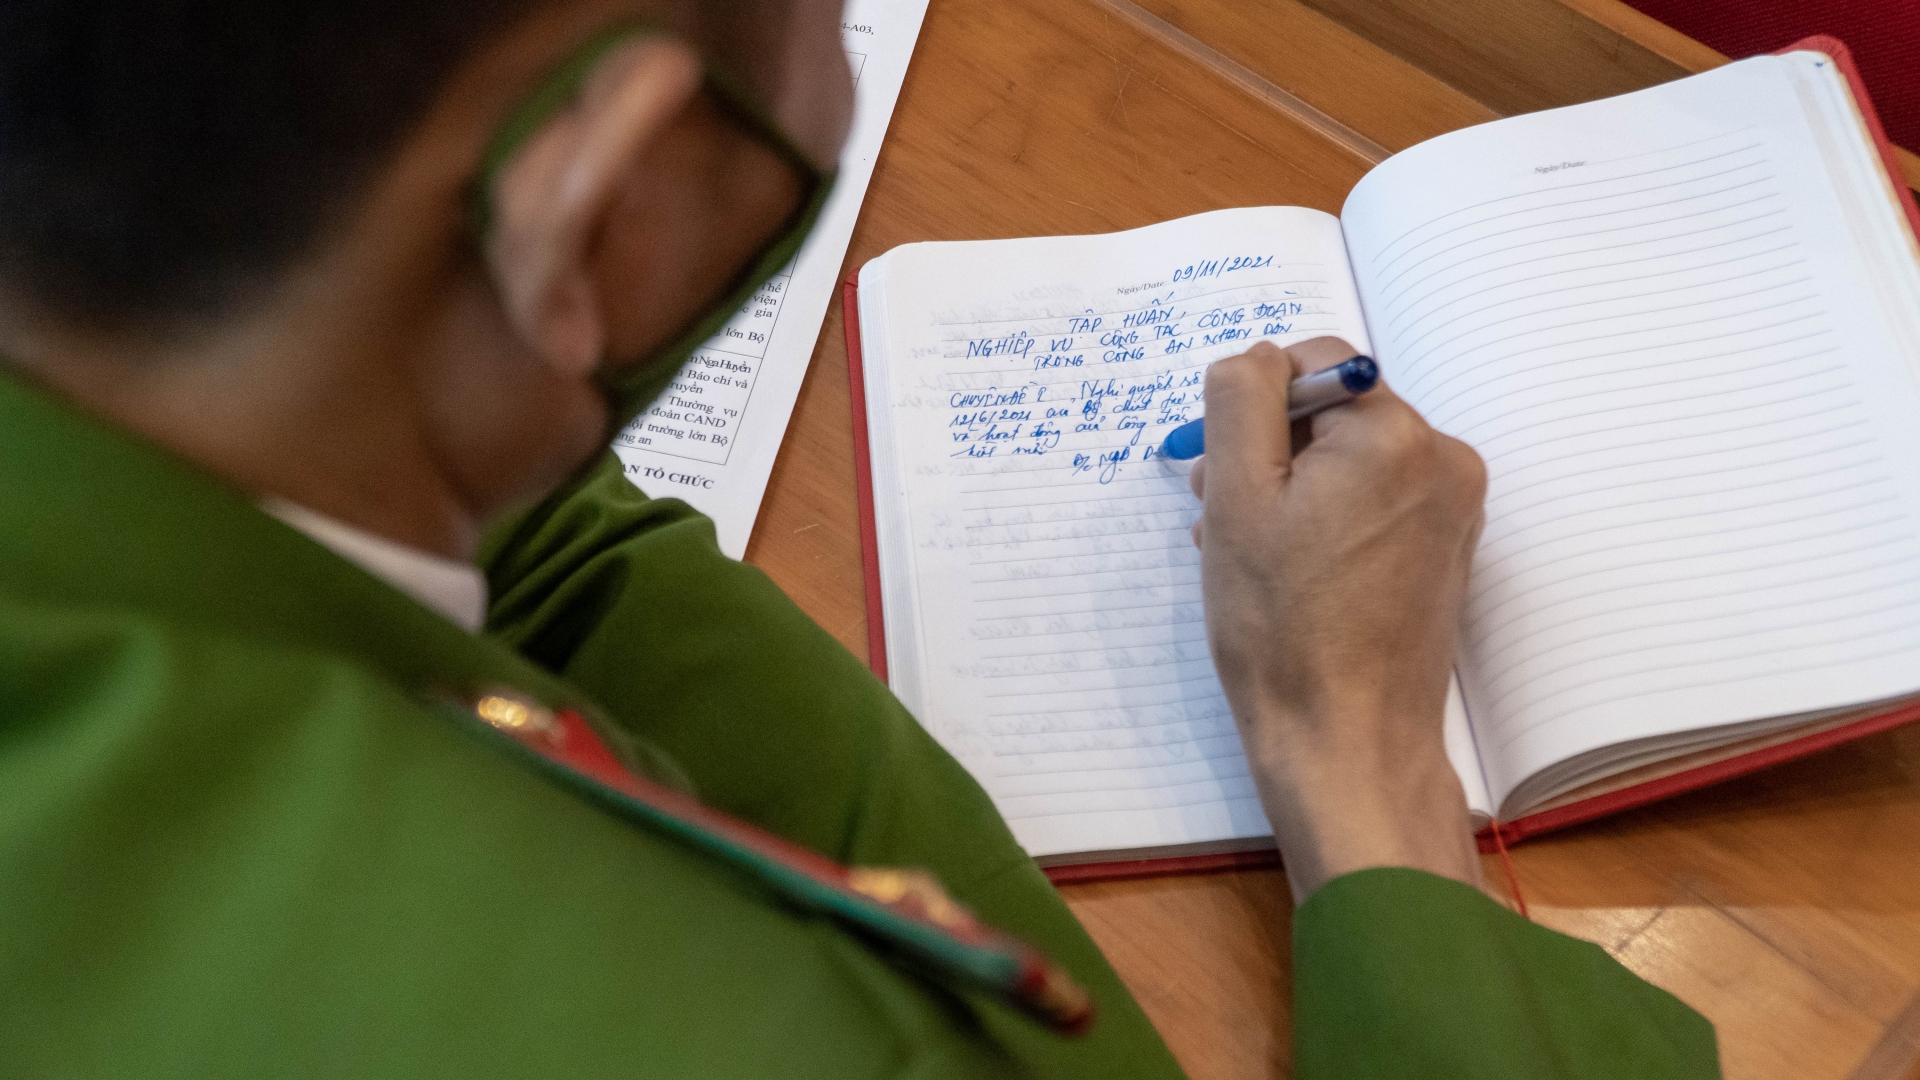 4-A03,
Thế
viện
c gia
lớn Bộ
Nga Huyền
Báo chí và
ruyền
Thường vụ
đoàn CAND
ội trường lớn Bộ
ng an
AN TỔ CHỨC
Ngày/Date 09/11/2021.
TẬP HUẤN
NGHIỆP VỤ CÔNG TÁC CÔNG ĐOÀN
TRONG CÔNG AN NHÂN DÂN
CHUYÊN ĐỀ 1 Nghị quyết số
12/6/2021 của Bộ chính trị về
và hoạt động của Công đoàn
mới
Đ/c Ngọ D
Ngày/Date